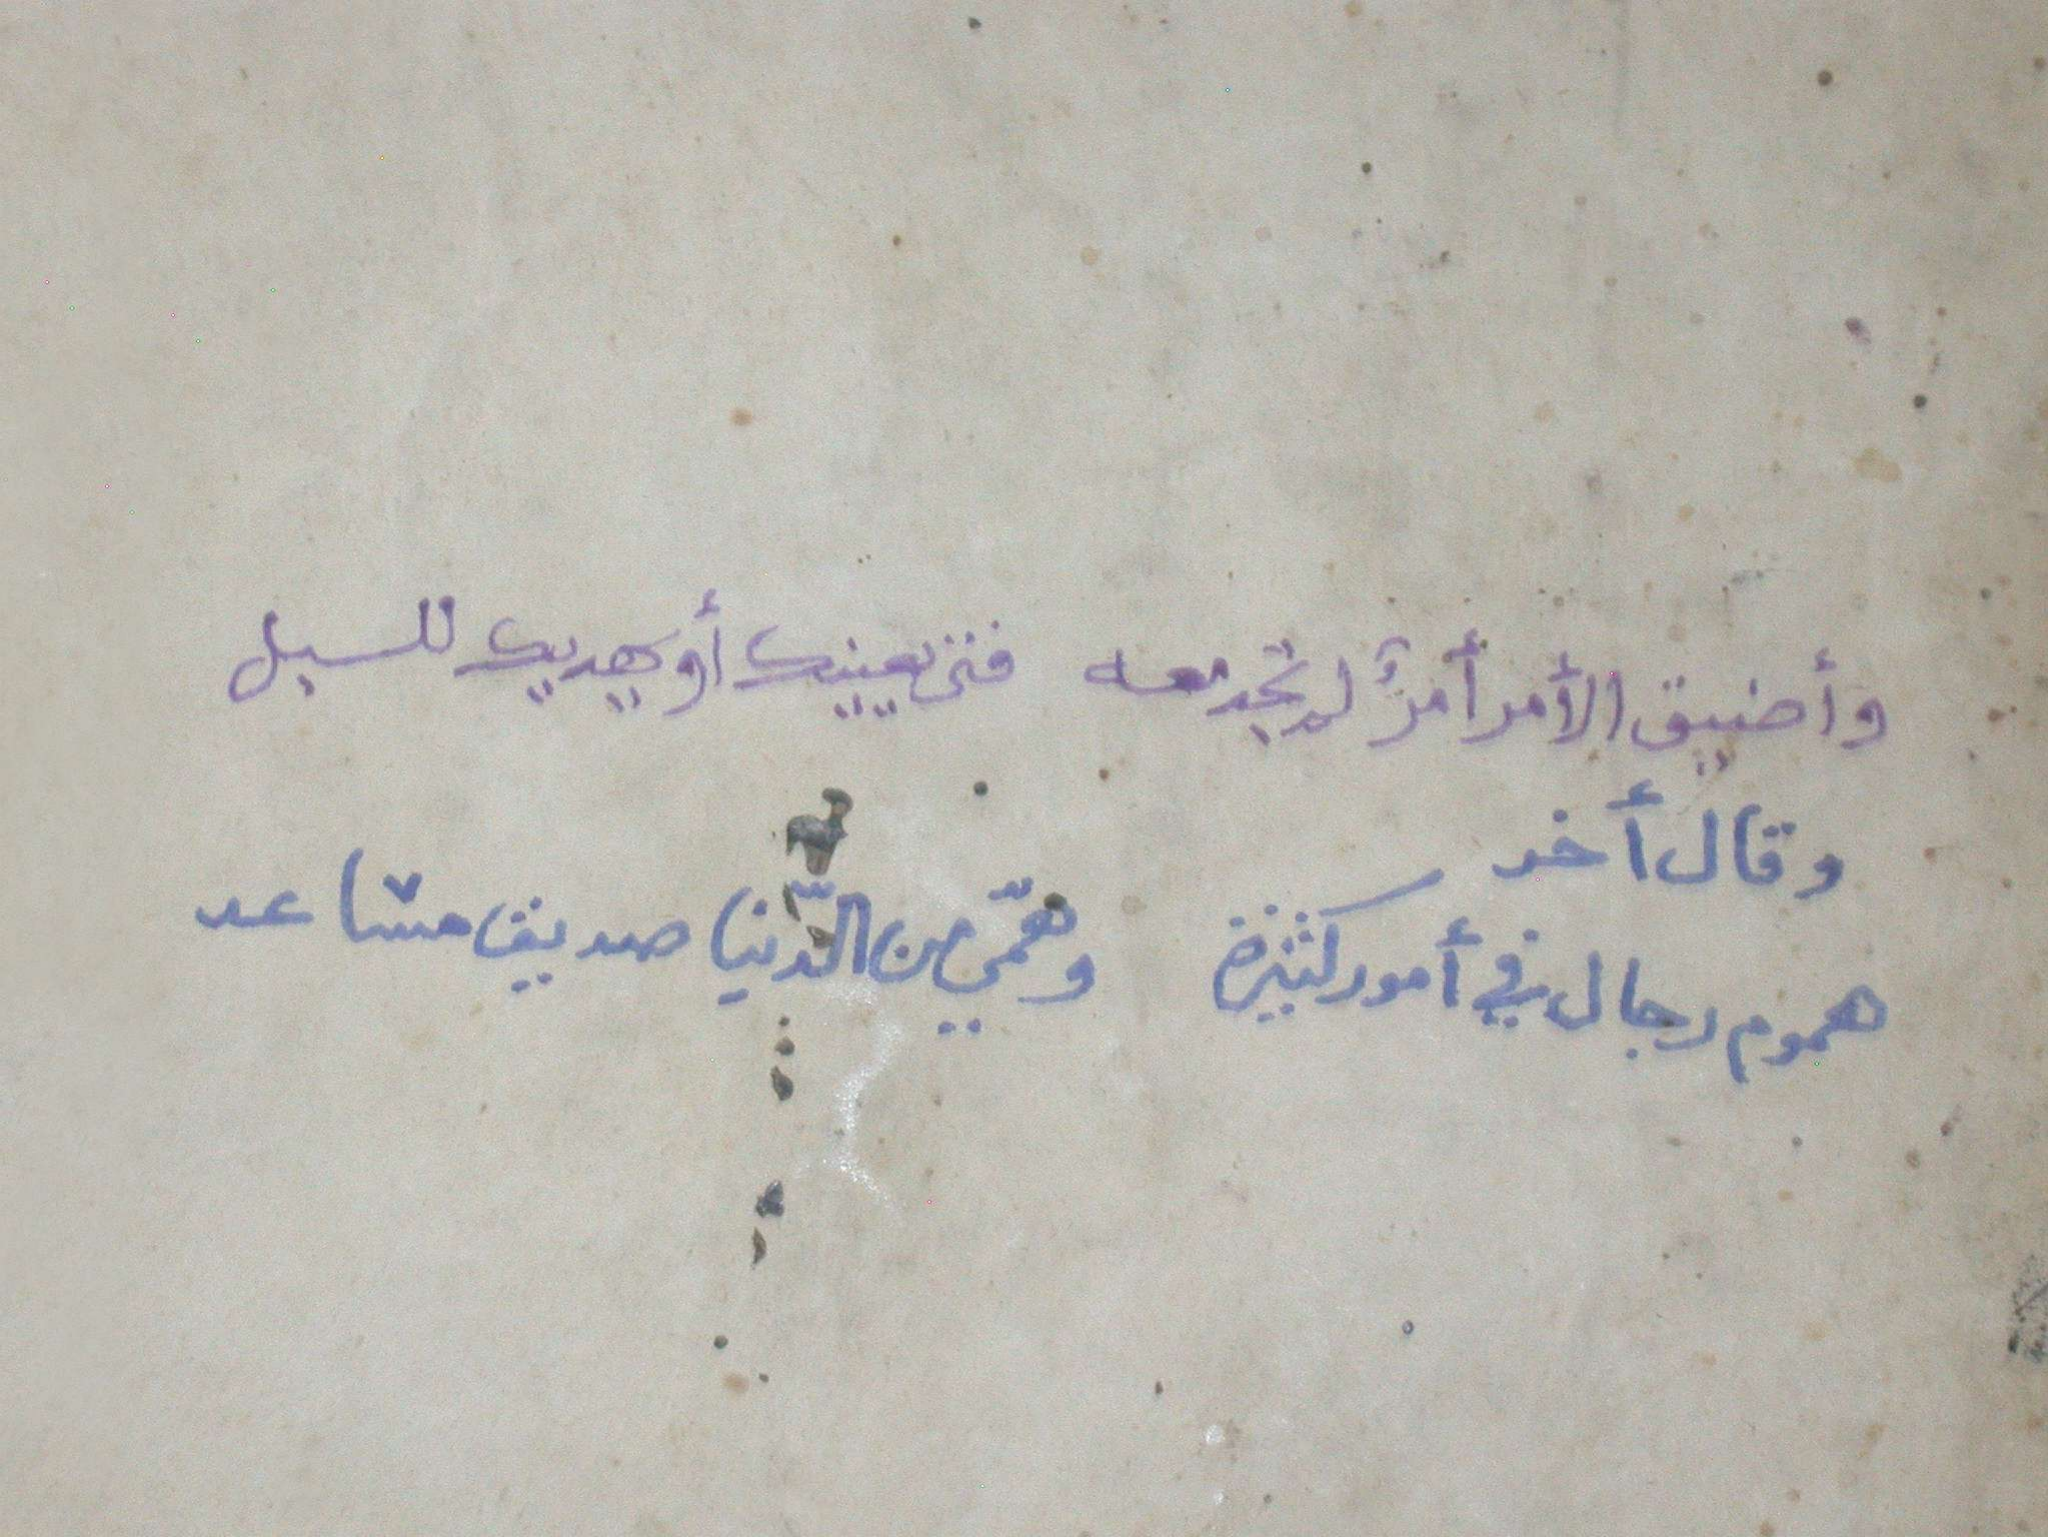 وأضيق الأمر أمرً لم تجد معه فتى يعينك أو يهديك للسبل
وقال أخر
هموم رجال في أمور كثيرة وهمّي من الدّنيا صديق مساعد